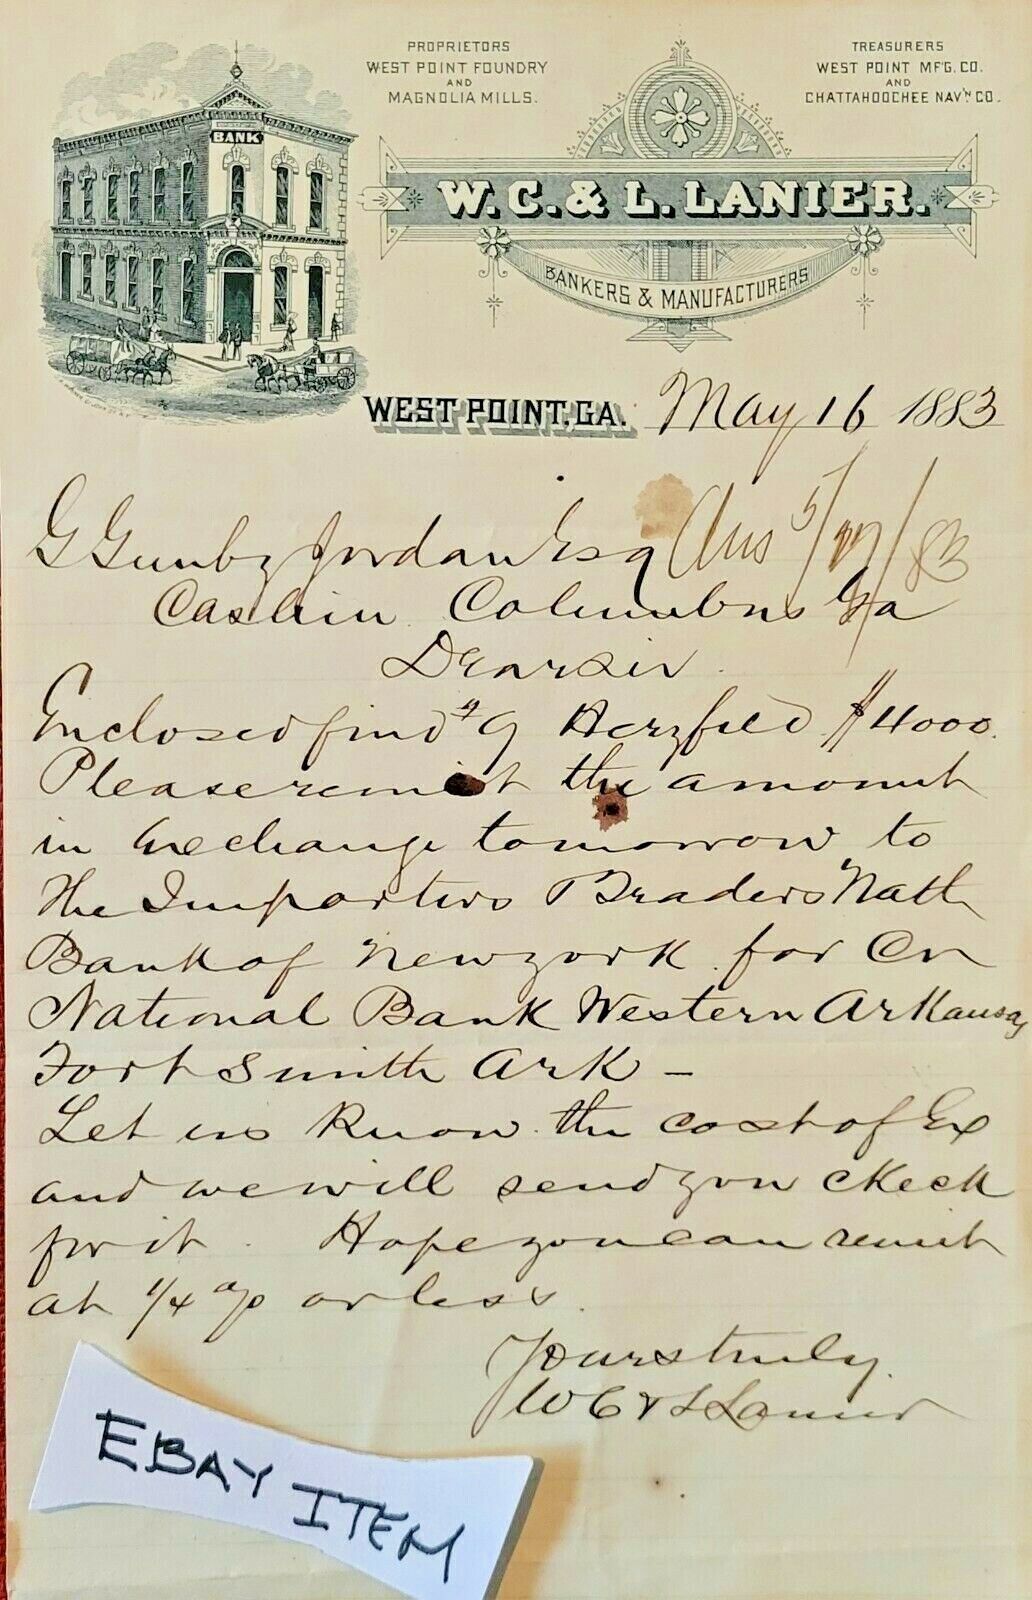 PROPRIETORS
WEST POINT FOUNDRY
AND
MAGNOLIA MILLS.
TREASURERS
WEST POINT M'F'G. CO.
AND
CHATTAHOOCHEE NAV'N CO.
BANK
W. C. & L. LANIER.
BANKERS & MANUFACTURERS
WEST POINT, GA. May 16 1883
G Gunby Jordan Esq Ans 5/17/83
Cashier Columbus Ga
Dear Sir
Enclosed find Herzfeld $4000.
Please remit the amount
in Exchange tomorrow to
the Importers Traders Natl
Bank of New york for Cr
National Bank Western Arkansas
Fort Smith Ark —
Let us know the cost of Ex
and we will send you check
for it. Hope you can remit
at 1/4 % or less.
Yours truly
W C & L Lanier
EBAY ITEM